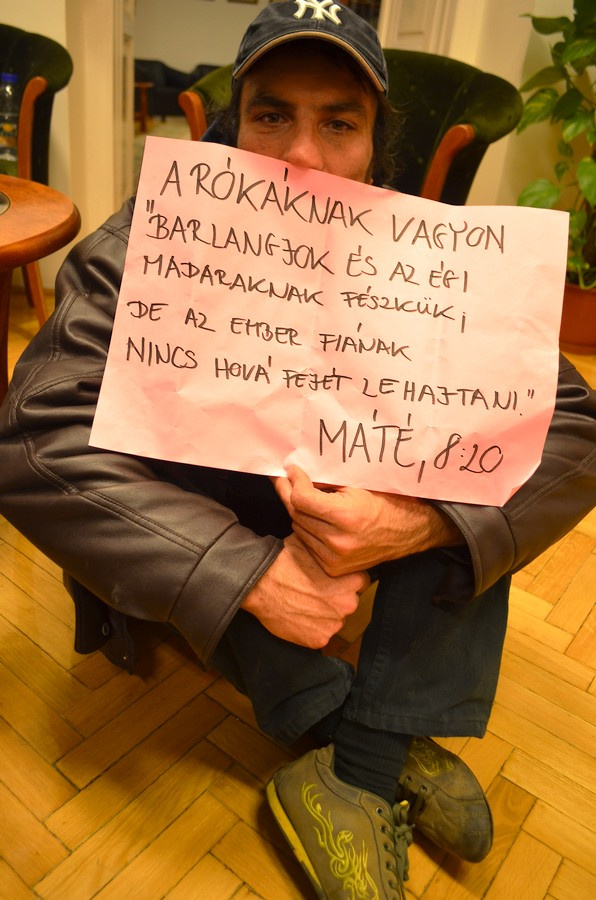 NY
A RÓKÁKNAK VAGYON
"BARLANGJOK ÉS AZ ÉGI
MADARAKNAK FÉSZKÜK;
DE AZ EMBER FIÁNAK
NINCS HOVÁ FEJÉT LEHAJTANI."
MÁTÉ, 8:20